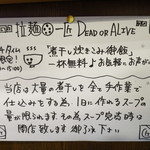 拉麺 一匹 DEAD OR ALIVE
チタイム
限定!
「煮干し炊きこみ御飯」
一杯無料よ♪お気軽にお声が
当店は大量の煮干しを全て手作業で
仕込みをする為、1日に作れるスープの
量が限られます。その為スープ完売時は
閉店致します。御了承下さい